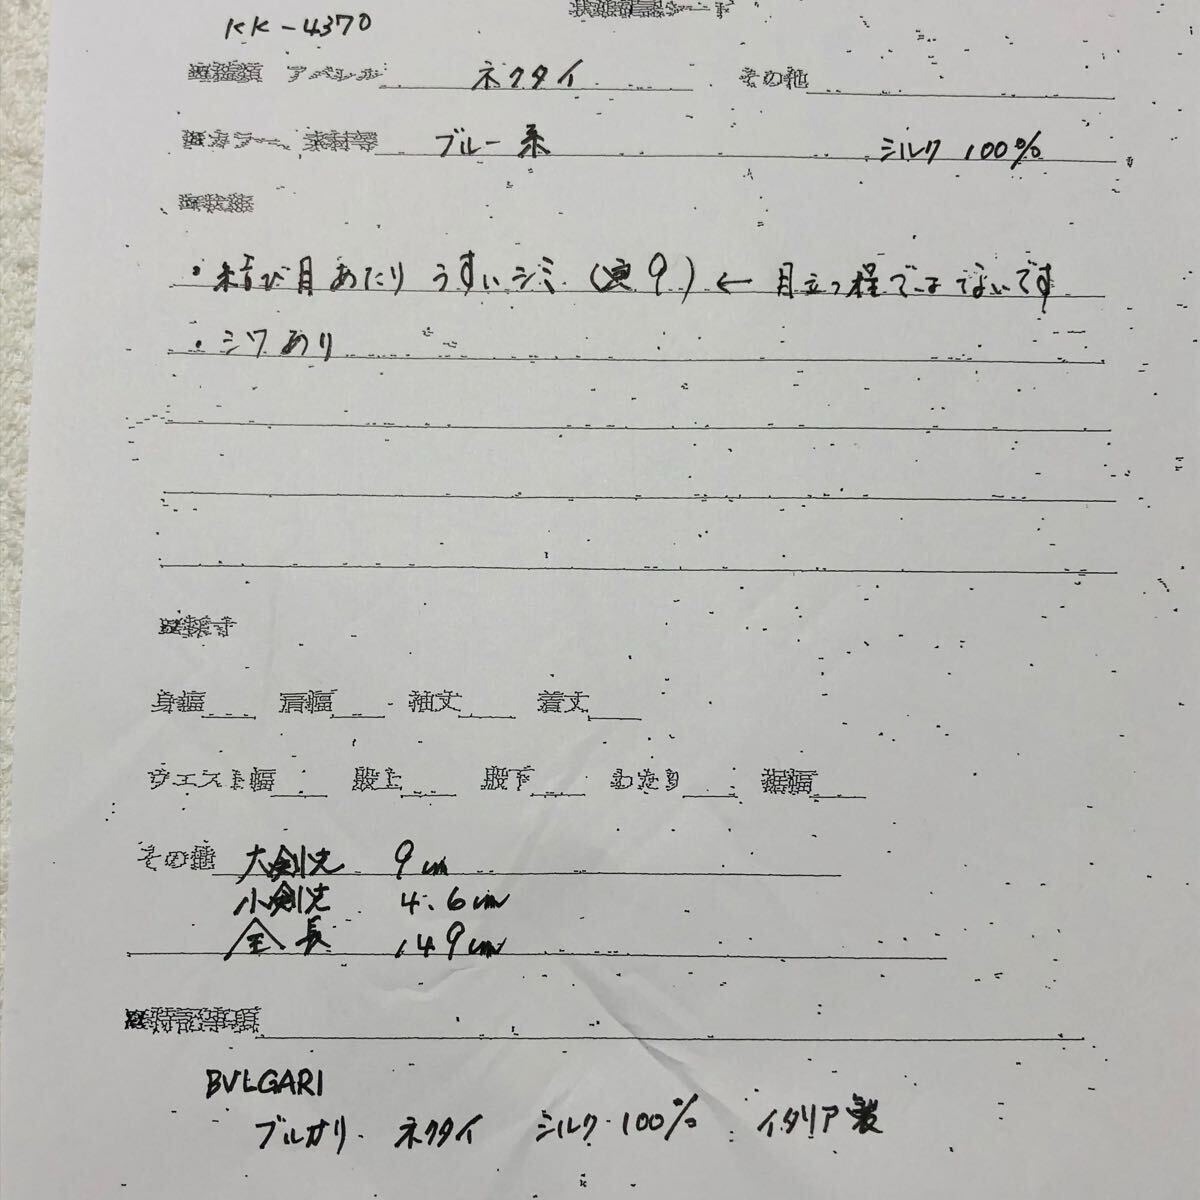 状態確認シート
KK-4370
アパレル ネクタイ その他
カラー、素材等 ブルー系 シルク 100%
状態
・結び目あたり うすいシミ (写9) ← 目立つ程ではないです
・シワあり
採寸
身幅 肩幅 袖丈 着丈
ウエスト幅 股上 股下 わたり 裾幅
その他 大剣先 9cm
小剣先 4.6cm
全長 149cm
特記事項
BVLGARI
ブルガリ ネクタイ シルク 100% イタリア製